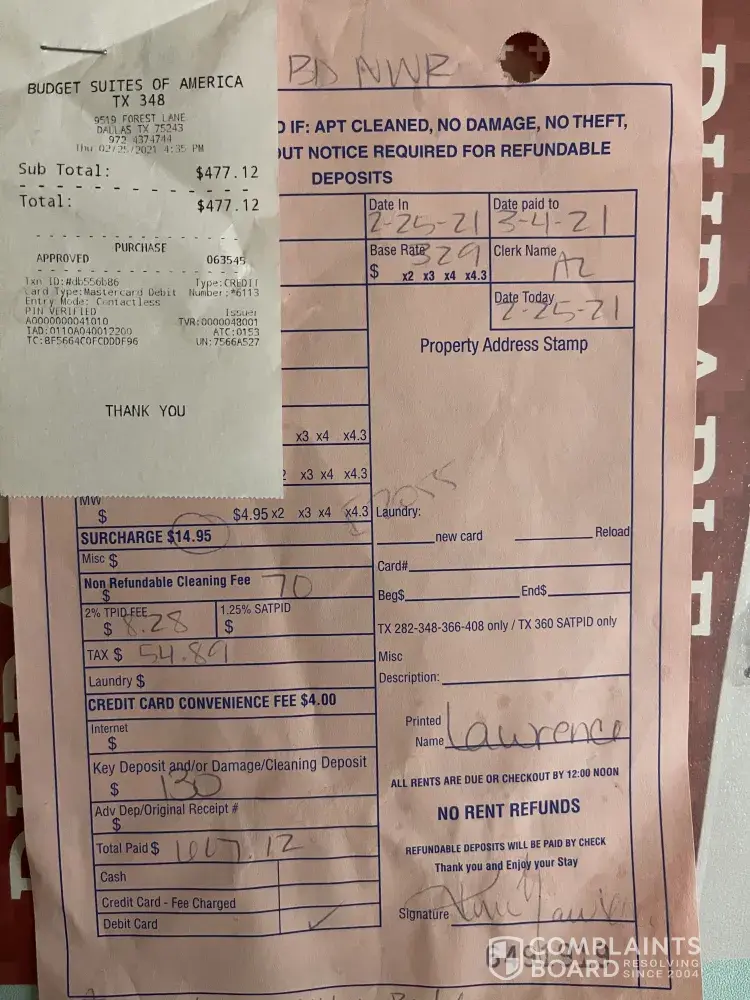 BD NWR
BUDGET SUITES OF AMERICA
TX 348
9519 FOREST LANE
DALLAS TX 75243
972 4374744
Thu 02/25/2021 4:35 PM
Sub Total: $477.12
Total: $477.12
PURCHASE
APPROVED 063545
Txn ID:#db556b86 Type:CREDIT
Card Type:Mastercard Debit Number:*6113
Entry Mode: Contactless
PIN VERIFIED Issuer
A0000000041010 TVR:0000048001
IAD:0110A040012200 ATC:0153
TC:8F5664C0FCDDDF96 UN:7566A527
THANK YOU
D IF: APT CLEANED, NO DAMAGE, NO THEFT,
OUT NOTICE REQUIRED FOR REFUNDABLE
DEPOSITS
Date In 2-25-21
Date paid to 3-4-21
Base Rate 329
$ x2 x3 x4 x4.3
Clerk Name AZ
Date Today 2-25-21
Property Address Stamp
x3 x4 x4.3
x3 x4 x4.3
MW
$ $4.95 x2 x3 x4 x4.3
SURCHARGE $14.95
Misc $
Non Refundable Cleaning Fee 70
$
2% TPID FEE
$ 8.28
1.25% SATPID
$
TAX $ 54.89
Laundry $
CREDIT CARD CONVENIENCE FEE $4.00
Internet
$
Key Deposit and/or Damage/Cleaning Deposit
$ 130
Adv Dep/Original Receipt #
$
Total Paid $
Cash
Credit Card - Fee Charged
Debit Card ✓
Laundry:
new card Reload
Card#
Beg$ End$
TX 282-348-366-408 only / TX 360 SATPID only
Misc
Description:
Printed
Name Lawrence
ALL RENTS ARE DUE OR CHECKOUT BY 12:00 NOON
NO RENT REFUNDS
REFUNDABLE DEPOSITS WILL BE PAID BY CHECK
Thank you and Enjoy your Stay
Signature
COMPLAINTS
BOARD RESOLVING
SINCE 2004